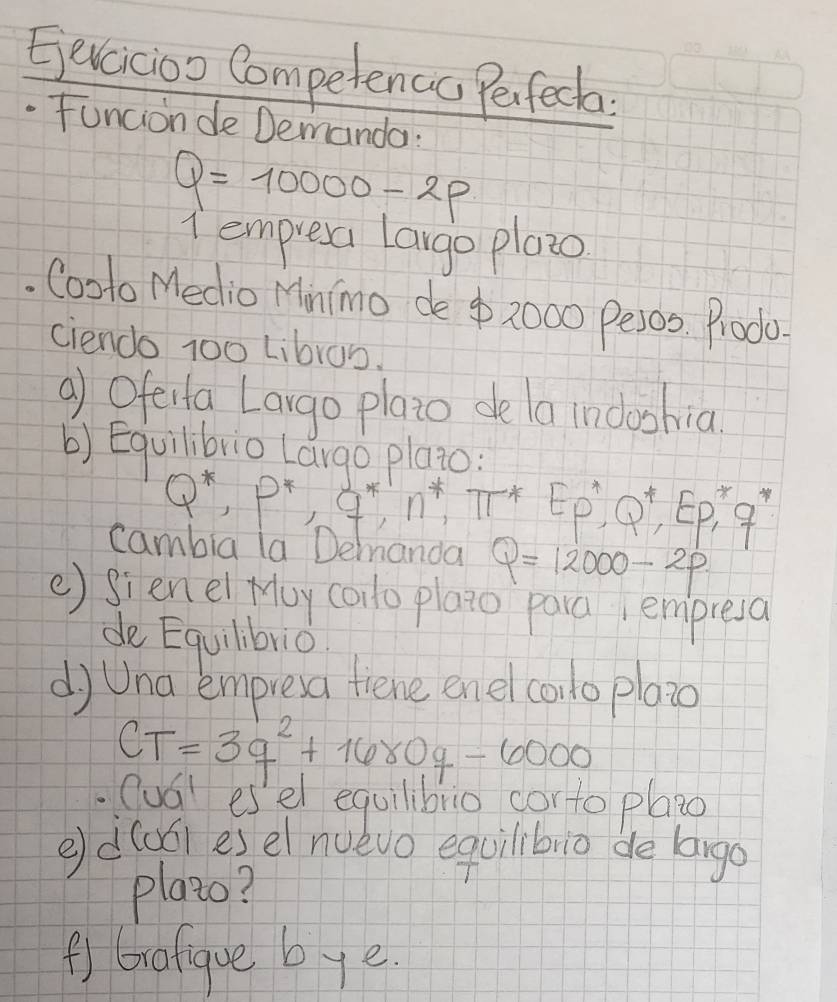 Ejercicios Competencia Perfecta:
• Función de Demanda:
Q = 10000 - 2P
1 empresa Largo plazo.
• Costo Medio Minimo de $ 2000 Pesos. Produ-
ciendo 100 Libros.
a) Oferta Largo plazo de la industria.
b) Equilibrio Largo plazo:
Q*, P*, q*, n*, π* Ep*, Q*, Ep,* q*
cambia la Demanda Q = 12000 - 2P.
c) Si en el Muy corto plazo para 1 empresa
de Equilibrio.
d.) Una empresa tiene en el corto plazo
CT = 3q² + 1680q - 6000
• Cuál es el equilibrio corto plazo
e) ¿Cuál es el nuevo equilibrio de largo
plazo?
f) Grafique b y e.